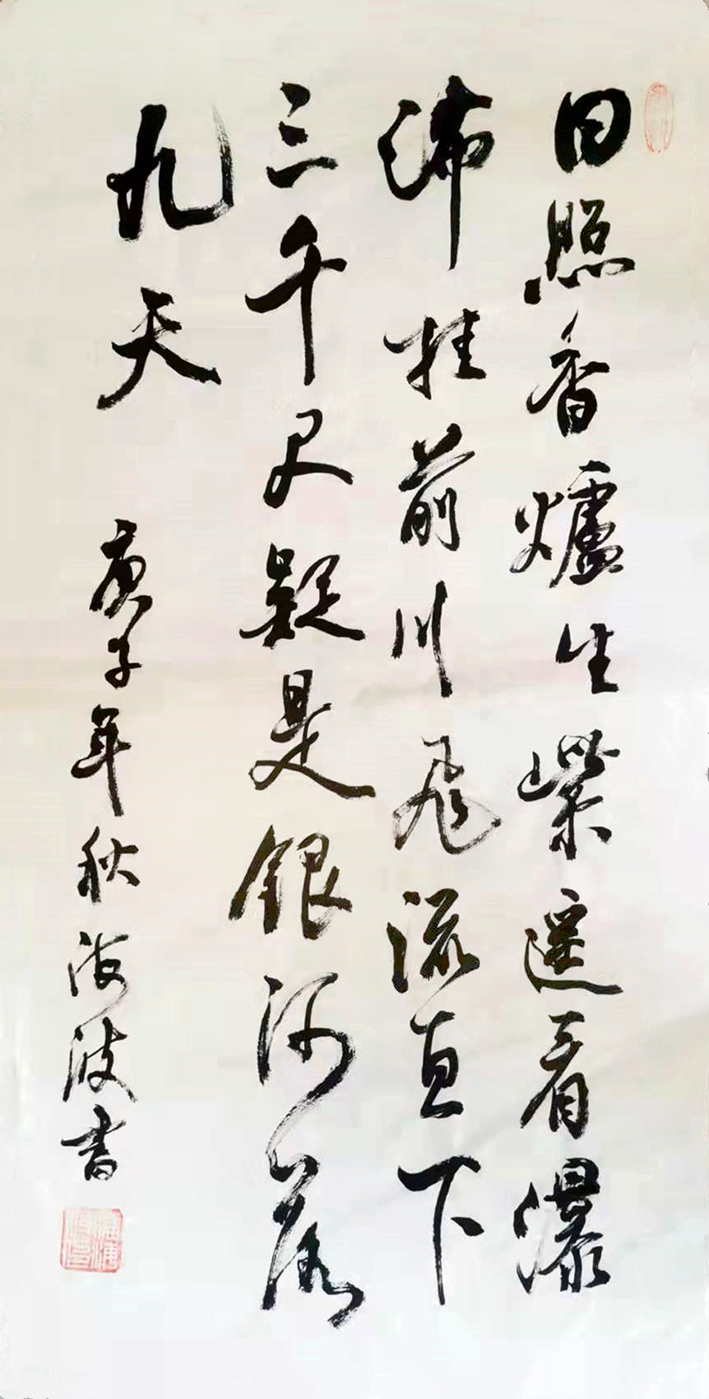 日照香爐生紫遥看瀑
沛挂前川飛流直下
三千尺疑是銀河落
九天
庚子年秋海波書